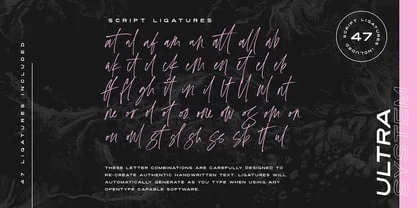 SCRIPT LIGATURES
at al af am an att all ab
ak et el ck em en et el eb
ff fl gh it in il tt ll nl nt
ne or ot of os one ow og om on
on oul gt sl sh ss sb tt ul
THESE LETTER COMBINATIONS ARE CAREFULLY DESIGNED TO
RE-CREATE AUTHENTIC HANDWRITTEN TEXT. LIGATURES WILL
AUTOMATICALLY GENERATE AS YOU TYPE WHEN USING ANY
OPENTYPE CAPABLE SOFTWARE.
47 LIGATURES INCLUDED
SCRIPT LIGATURES
47
INCLUDED
ULTRA
SYSTEM